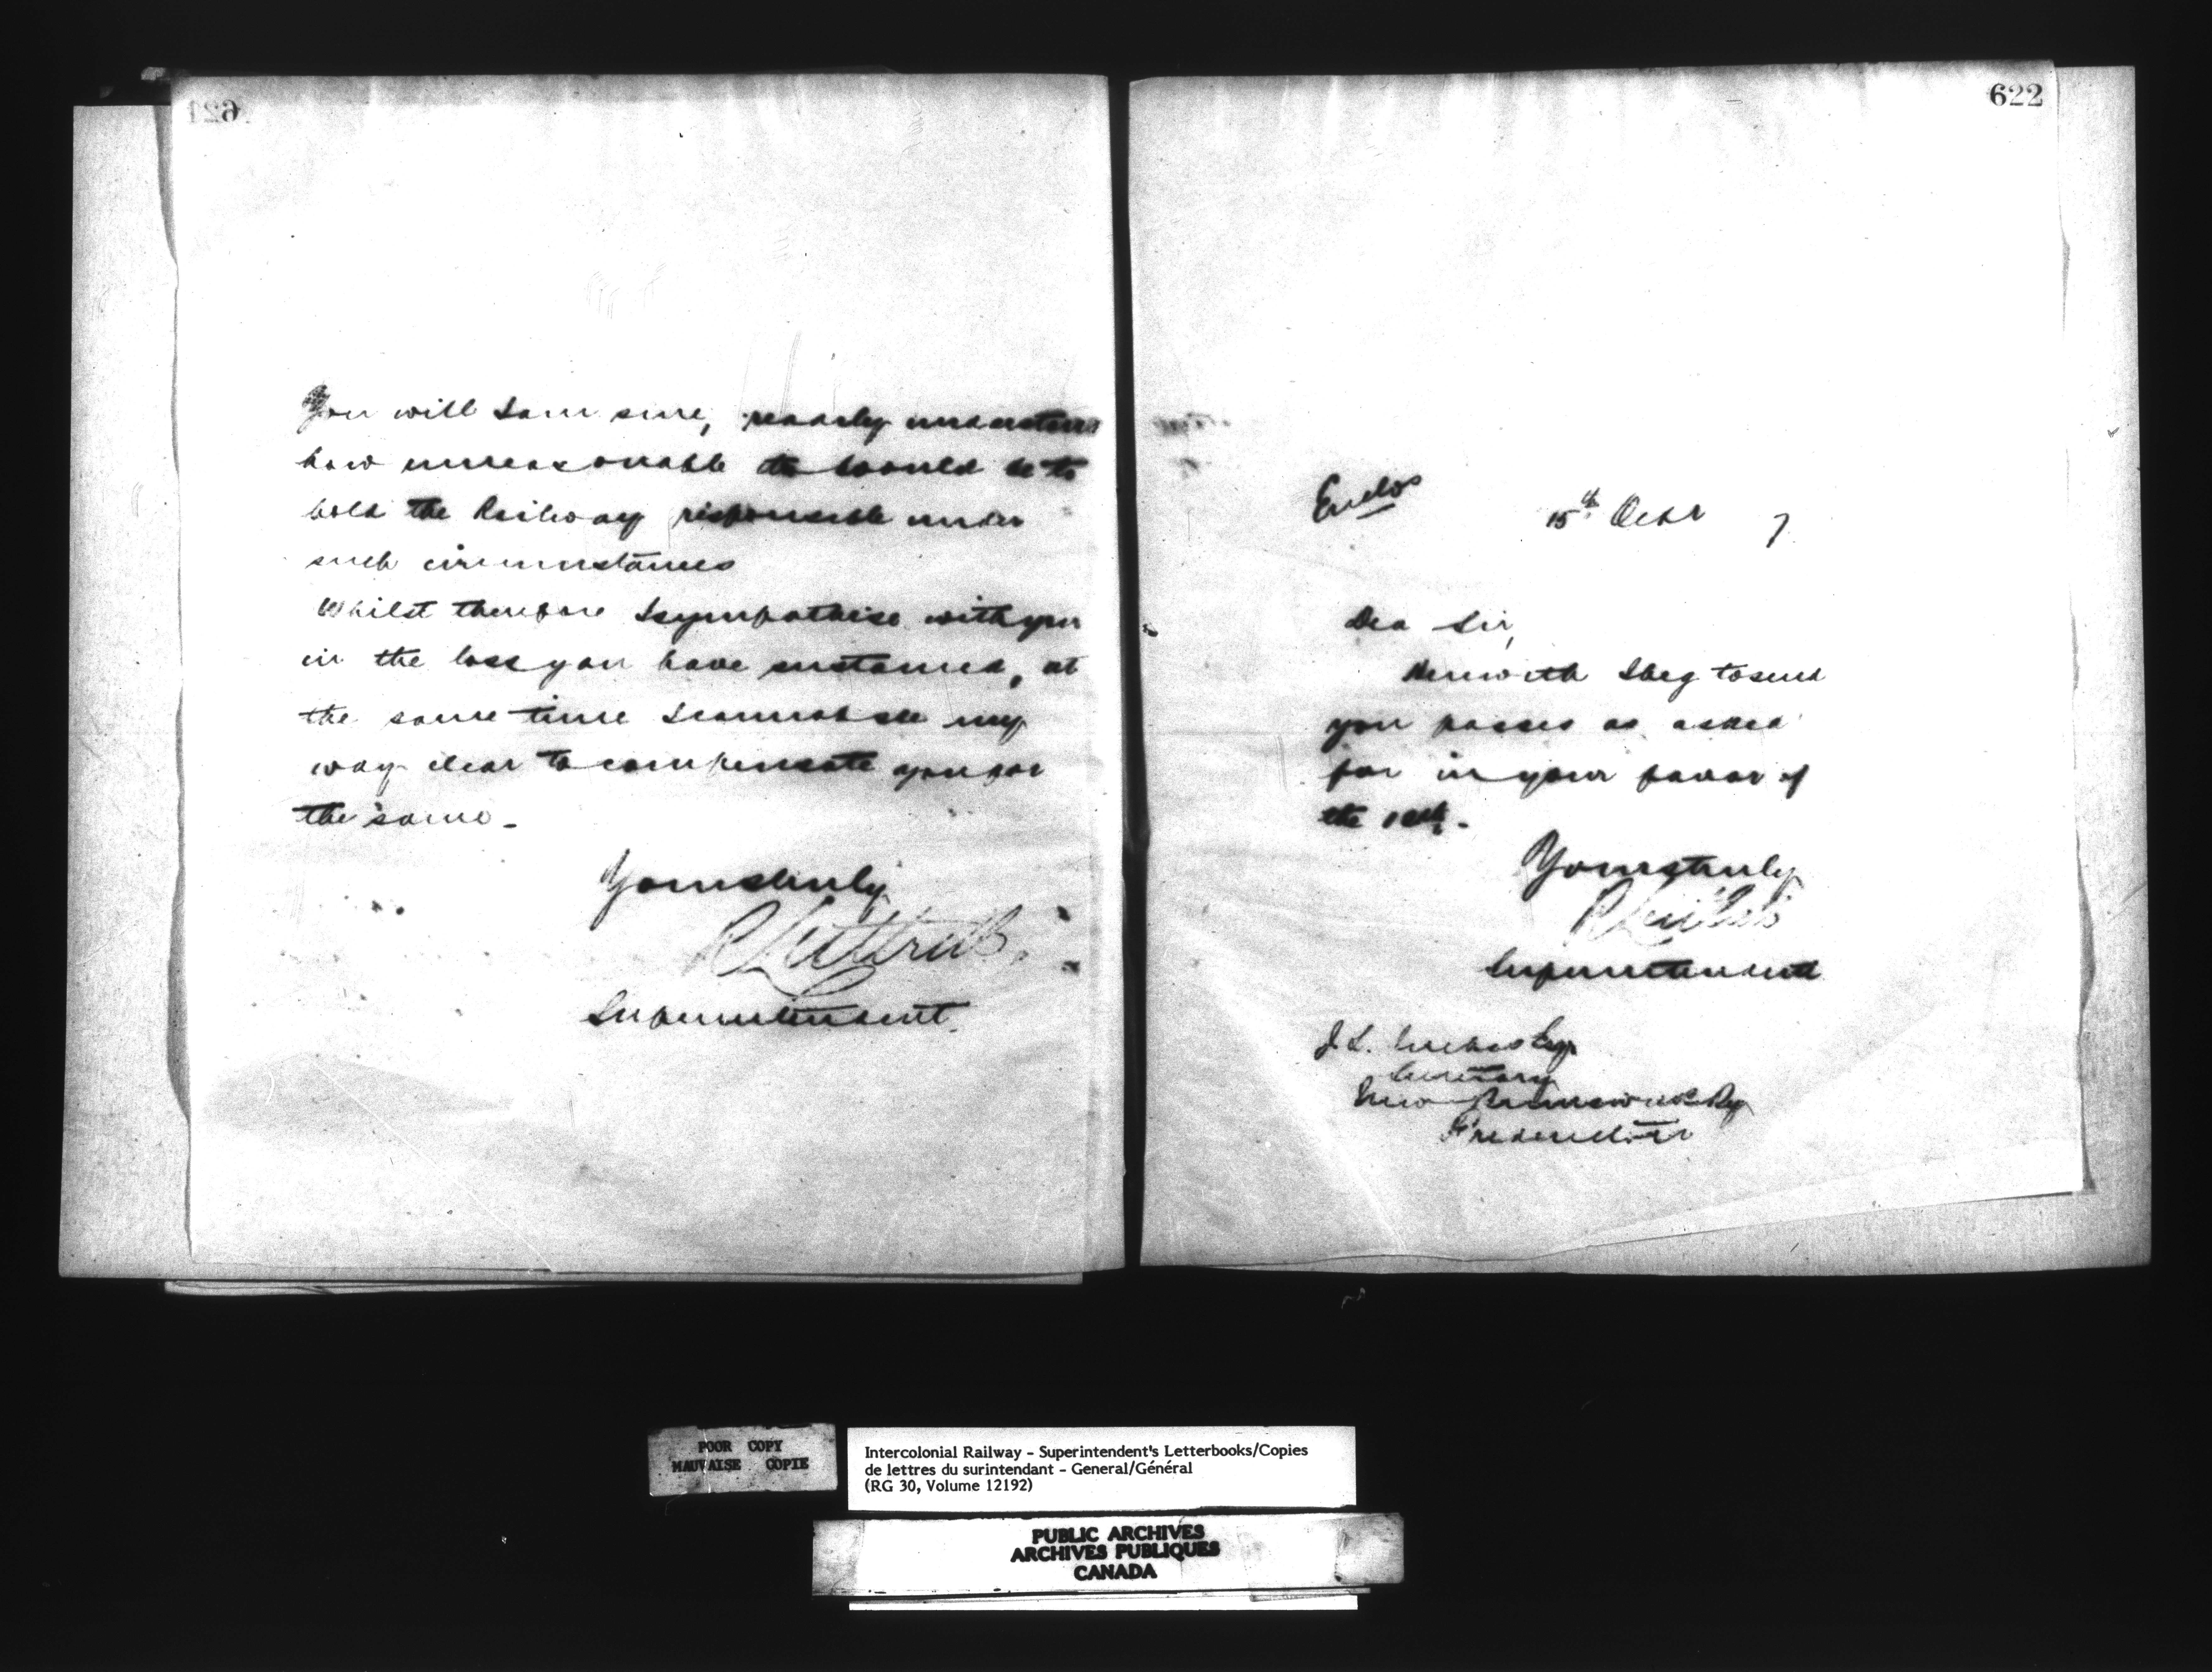 621
You will I am sure, readily understand
how unreasonable it would be to
hold the Railway responsible under
such circumstances
Whilst therefore I sympathise with you
in the loss you have sustained, at
the same time I cannot see my
way clear to compensate you for
the same -
Yours truly
Superintendent.
622
Enclos
15th 7
Dea Sir,
Herewith I beg to send
you passes as asked
for in your favor of
the
Yours truly
Superintendent
J. L. Esq
Secretary
New Brunswick Ry
Fredericton
POOR COPY
MAUVAISE COPIE
Intercolonial Railway - Superintendent's Letterbooks/Copies
de lettres du surintendant - General/Général
(RG 30, Volume 12192)
PUBLIC ARCHIVES
ARCHIVES PUBLIQUES
CANADA